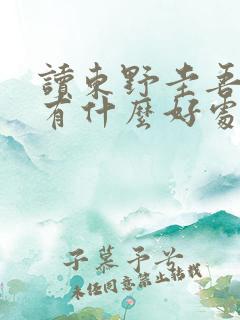 讀東野圭吾
有什麼好處
子慕予兮
未經同意禁止轉載